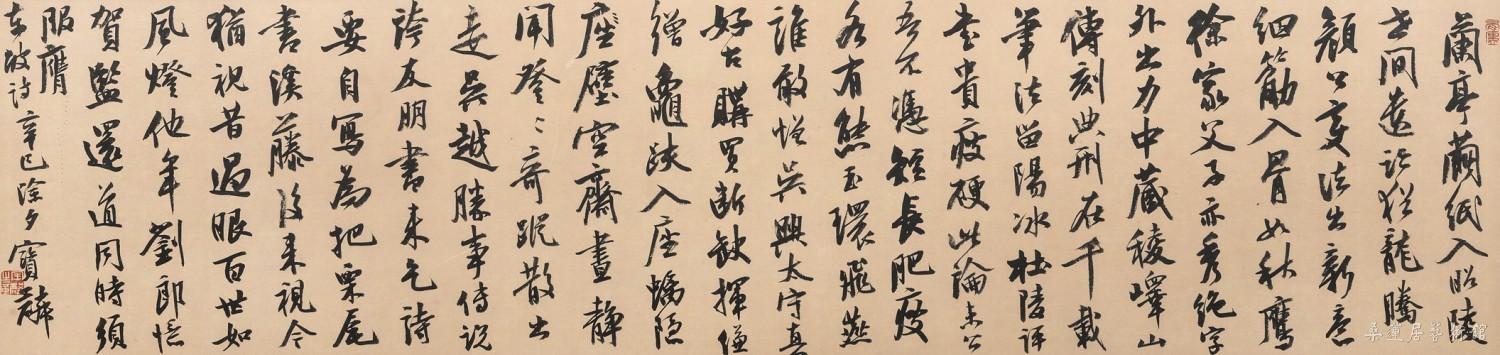 蘭亭繭紙入昭陵
世間遺跡猶龍騰
顏公變法出新意
細筋入骨如秋鷹
徐家父子亦秀絕字
外出力中藏稜嶧山
傳刻典刑在千載
筆法留陽冰杜陵評
書貴瘦硬此論未公
吾不憑短長肥瘦
各有態玉環飛燕
誰敢憎吳興太守真
好古購買斷缺揮縑
繒龜趺入座螭隱
座壁空齋晝靜
聞登〻奇蹤散出
走吳越勝事傳說
誇友朋書來乞詩
要自寫為把栗尾
書溪藤後來視今
猶視昔過眼百世如
風燈他年劉郎憶
賀監還道同時須
服膺
東坡詩辛巳除夕寶麟
桑蓮居藝術館